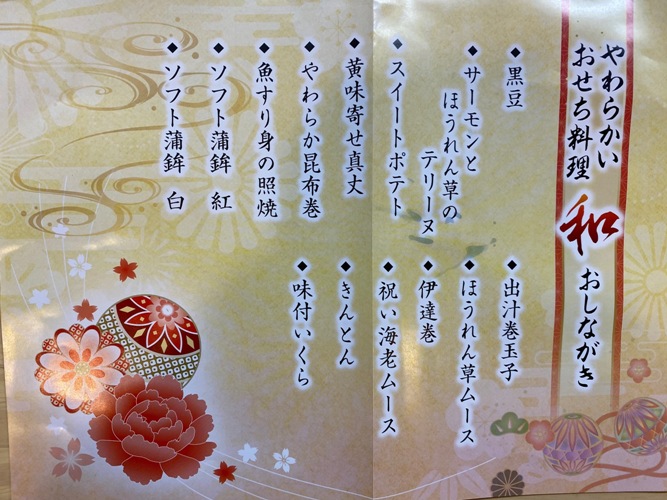 やわらかい
おせち料理
和
おしながき
◆黒豆
◆サーモンと
ほうれん草の
テリーヌ
◆スイートポテト
◆黄味寄せ真丈
◆やわらか昆布巻
◆魚すり身の照焼
◆ソフト蒲鉾 紅
◆ソフト蒲鉾 白
◆出汁巻玉子
◆ほうれん草ムース
◆伊達巻
◆祝い海老ムース
◆きんとん
◆味付いくら